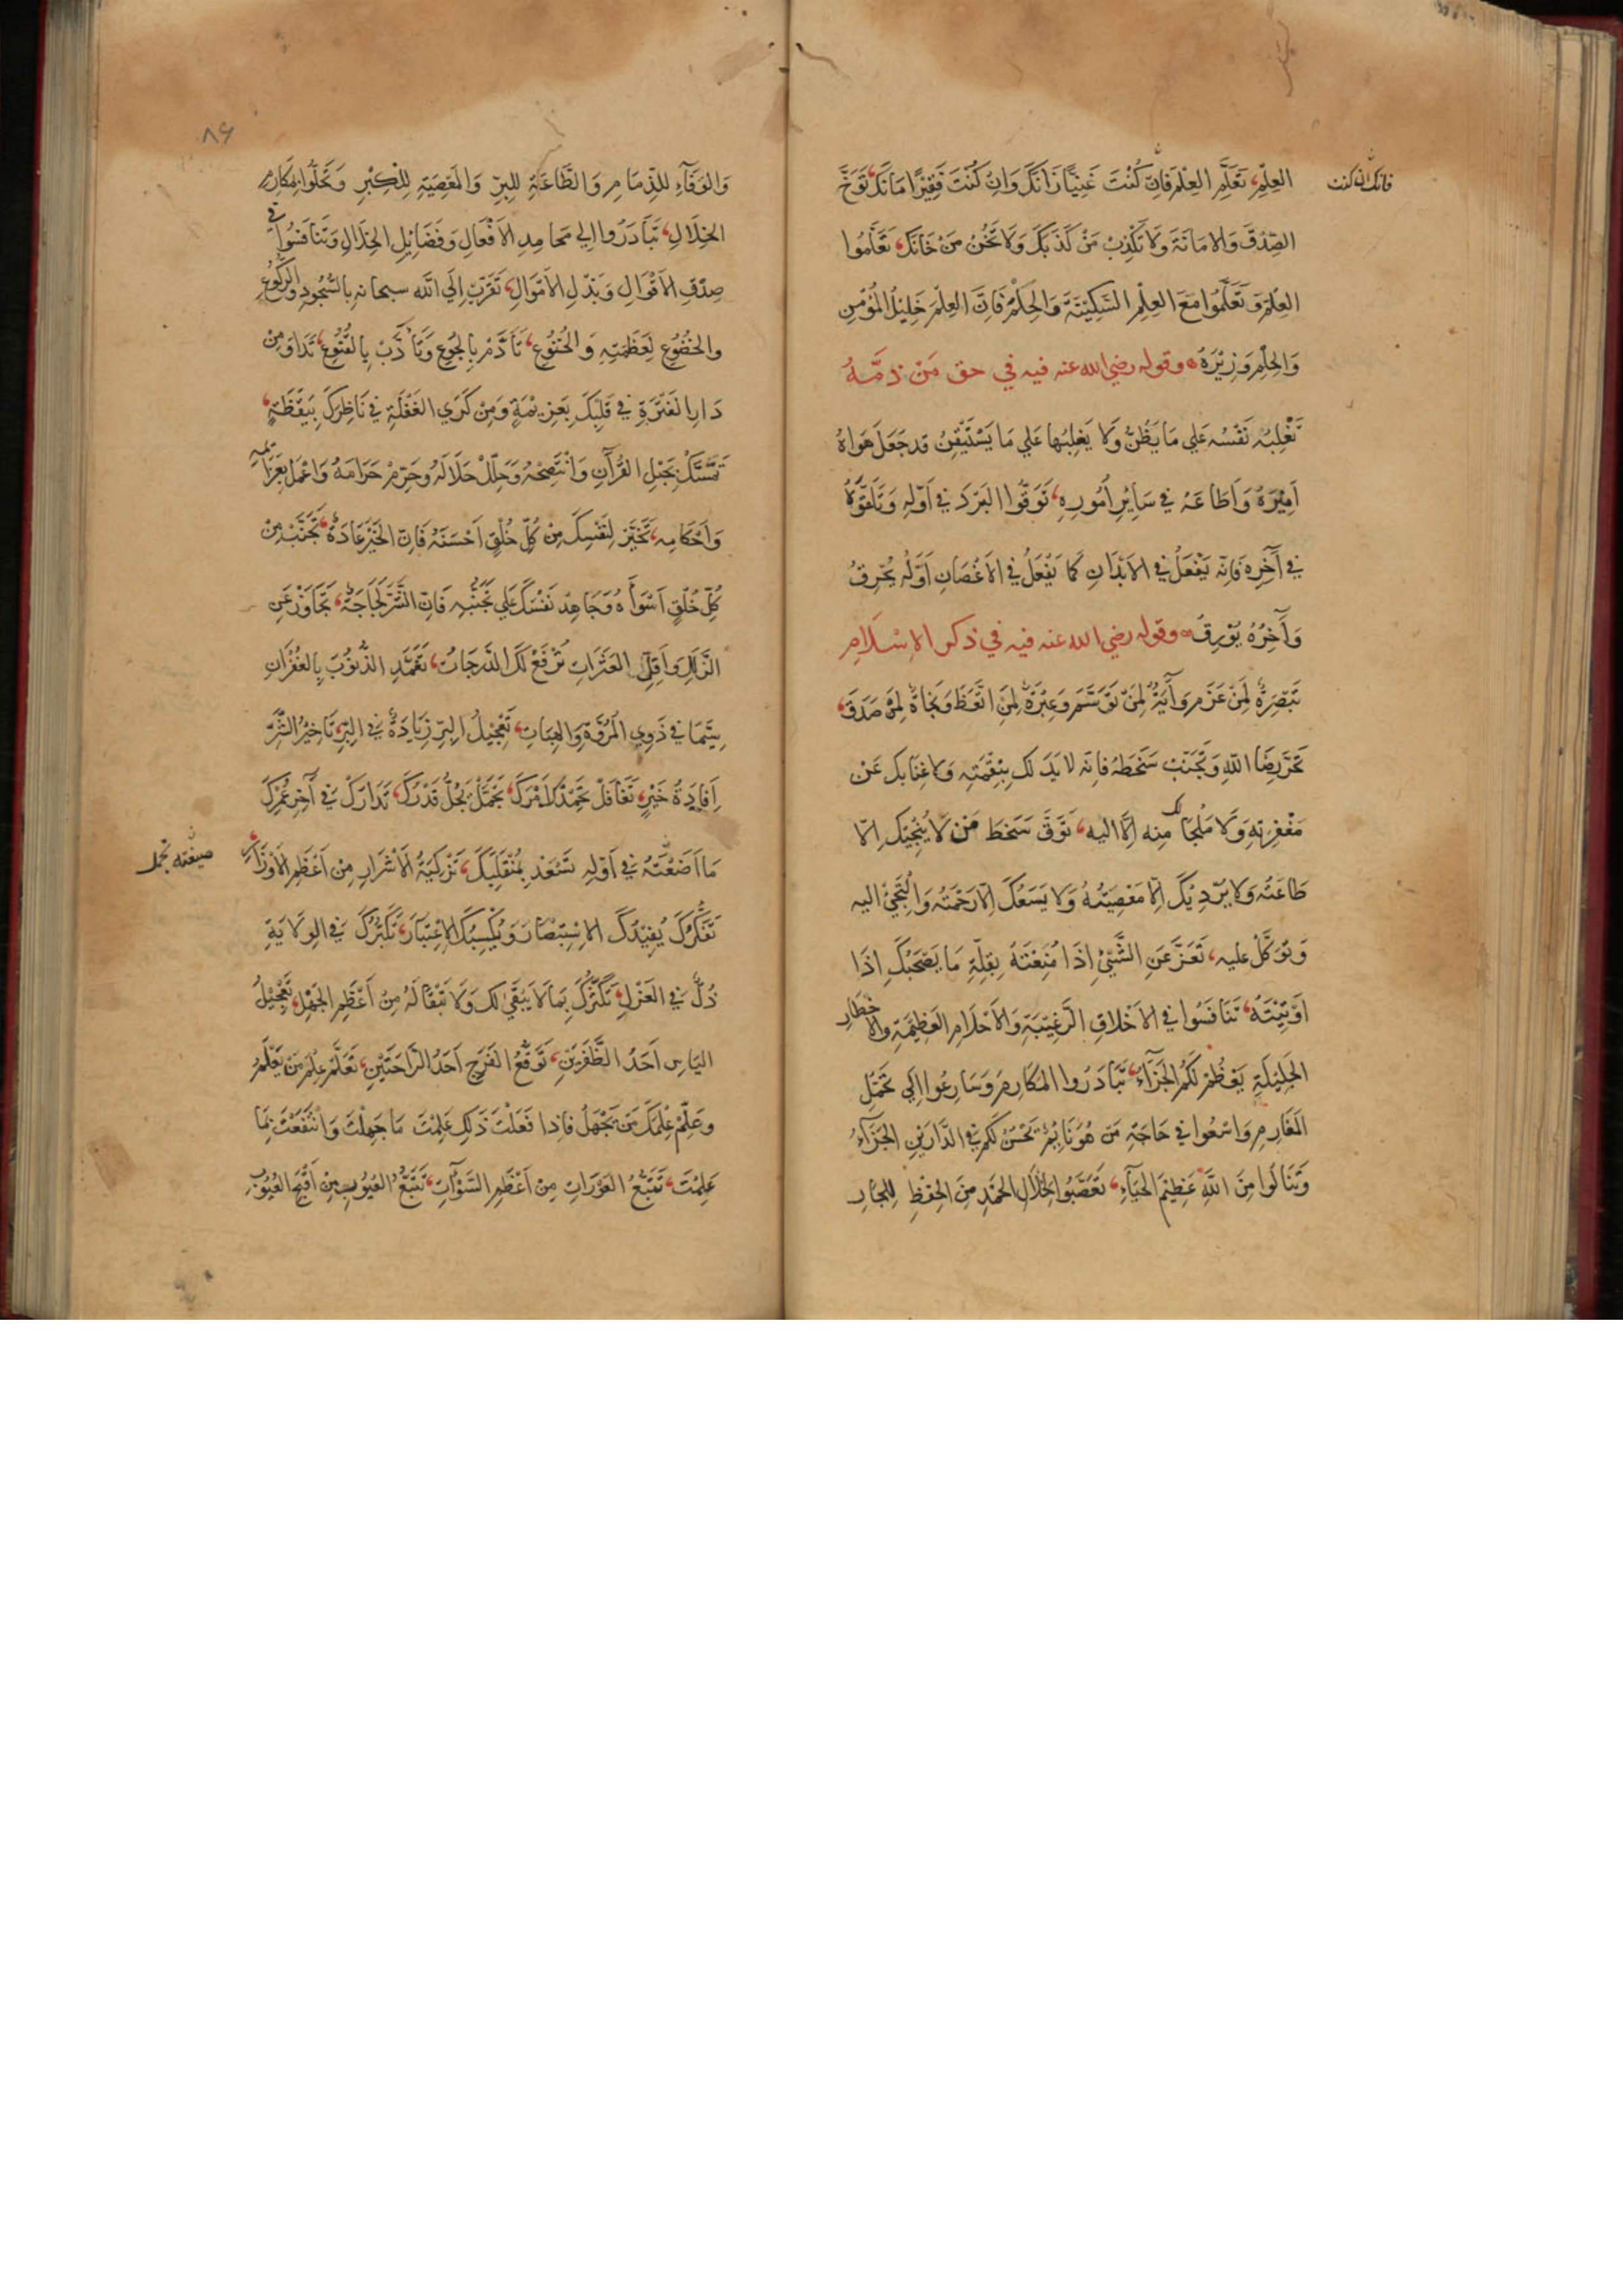 العِلْمِ، تَعَلَّمِ العِلْمَ فَاِنْ كُنْتَ غَنِيًّا زَانَكَ وَاِنْ كُنْتَ فَقِيْرًا مَانَكَ، تَوَخَّ
فانك ان كنت
الصِّدْقَ وَالامَانَةَ وَلَا تُكَذِّبْ مَنْ كَذَبَكَ وَلَا تَخُنْ مَنْ خَانَكَ، تَعَلَّمُوا
العِلْمَ وَتَعَلَّمُوا مَعَ العِلْمِ السَّكِيْنَةَ وَالحِلْمَ فَاِنَّ العِلْمَ خَلِيْلُ المُؤْمِنِ
وَالحِلْمَ وَزِيْرَهُ، وقوله رضي الله عنه فيه في حق مَنْ ذمَّهُ
تَغْلِبُهُ نَفْسُهُ عَلي مَا يَظُنُّ وَلَا يَغْلِبُهَا عَلي مَا يَسْتَيْقِنُ قد جَعَلَ هَوَاهُ
اَمِيْرَهُ وَاَطَاعَهُ في سَائِرِ اُمُورِهِ، تَوَقُّوا البَرْدَ في اَوَّلِهِ وَتَلَقَّوْهُ
في آخِرِهِ فَاِنّه يَفْعَلُ في الاَبْدَانِ كَمَا يَفْعَلُ في الاَغْصَانِ اَوَّلُهُ يُحْرِقُ
وَآخِرُهُ يُوْرِقُ، وقوله رضي الله عنه فيه في ذكر الاِسْلَامِ
تَبْصِرَةٌ لِمَنْ عَزَمَ وَآيَةٌ لِمَنْ تَوَسَّمَ وَعِبْرَةٌ لِمَنِ اتَّعَظَ وَنَجَاةٌ لِمَنْ صَدَقَ،
تَحَرَّ رِضَا اللهِ وَتَجَنَّبْ سَخَطَهُ فانه لا يَدَ لك بِنِقْمَتِهِ وَلا غِنَا بك عَنْ
مَغْفِرَتِهِ وَلَا مَلْجَا لك مِنه اِلَّا اليه، تَوَقَّ سَخَطَ مَنْ لَا يُنْجِيْكَ اِلّا
طَاعَتُه وَلا يُرْدِيْكَ اِلّا مَعْصِيَتُهُ وَلا يَسَعُكَ اِلّا رَحْمَتُه وَالْتَجِئْ اليه
وَتَوَكَّلْ عليه، تَعَزَّ عَنِ الشَّيْئِ اِذَا مُنِعْتَهُ بِقِلَّةِ مَا يَصْحَبُكَ اِذَا
اُوْتِيْتَهُ، تَنَافَسُوا في الاَخْلَاقِ الرَّغِيْبَةِ وَالاَحْلَامِ العَظِيْمَةِ والاخطار
الجَلِيْلَةِ يَعْظُمْ لَكُمُ الجَزَآءُ، تَبَادَرُوا المَكَارِمَ وَسَارِعُوا اِلَي تَحَمُّلِ
المَغَارِمِ وَاسْعُوا في حَاجَةِ مَنْ هُوَ نَائِمٌ يَحْسُنْ لَكُمْ في الدَّارَيْنِ الجَزَآءُ
وَتَنَالُوا مِنَ اللهِ عَظِيْمَ الحَبَآءِ، تَعَصَّبُوا لِخِلَالِ الحَمْدِ مِنَ الحِفْظِ لِلْجَارِ
٨٦
وَالوَفَآءِ لِلذِّمَامِ وَالطَّاعَةِ لِلْبِرِّ وَالمَعْصِيَةِ لِلْكِبْرِ وَتَحَلَّوا بِمَكَارِمِ
الخِلَالِ، تَبَادَرُوا اِلي مَحَامِدِ الاَفْعَالِ وَفَضَائِلِ الخِلَالِ وَتَنَافَسُوا في
صِدْقِ الاَقْوَالِ وَبَذْلِ الاَمْوَالِ، تَقَرَّبْ اِلَي الله سبحانه بِالسُّجُودِ وَالرُّكُوعِ
والخُضُوْعِ لِعَظَمَتِهِ وَالخُنُوْعِ، تَأَدَّمْ بِالجُوْعِ وَتَأَدَّبْ بِالقُنُوْعِ، تَدَاوَ مِنْ
دَاءِ الفَتْرَةِ في قَلْبِكَ بِعَزِيْمَةٍ وَمِنْ كَرَي الغَفْلَةِ في نَاظِرِكَ بِيَقْظَةٍ،
تَمَسَّكْ بِحَبْلِ القُرْآنِ وَانْتَصِحْهُ وَحَلِّلْ حَلَالَهُ وَحَرِّمْ حَرَامَهُ وَاعْمَلْ بِعَزَائِمِهِ
وَاَحْكَامِهِ، تَخَيَّرْ لِنَفْسِكَ مِنْ كُلِّ خُلُقٍ اَحْسَنَهُ فَاِنّ الخَيْرَ عَادَةٌ، تَجَنَّبْ مِنْ
كُلِّ خُلُقٍ اَسْوَأَهُ وَجَاهِدْ نَفْسَكَ عَلي تَجَنُّبِهِ فَاِنّ الشَّرَّ لَجَاجَةٌ، تَجَاوَزْ عَنِ
الزَّلَلِ وَاَقِلِ العَثَرَاتِ تُرْفَعْ لَكَ الدَّرَجَاتُ، تَغَمَّدِ الذُّنُوْبَ بِالغُفْرَانِ
سِيَّمَا في ذَوِي المُرُوَّةِ وَالهِبَاتِ، تَعْجِيْلُ البِرِّ زِيَادَةٌ في البِرِّ، تَاخِيْرُ الشَّرِّ
اِفَادَةُ خَيْرٍ، تَغَافَلْ يُحْمَدْ اَمْرُكَ، تَجَمَّلْ يَجُلَّ قَدْرُكَ، تَدَارَكْ في آخِرِ عُمْرِكَ
مَا اَضَعْتَهُ في اَوّلِهِ تَسْعَدْ بِمُنْقَلَبِكَ، تَزْكِيَةُ الاَشْرَارِ مِنْ اَعْظَمِ الاَوْزَارِ،
تَفَكُّرُكَ يُفِيْدُكَ الاِسْتِبْصَارَ وَيُكْسِبُكَ الاِعْتِبَارَ، تَكَبُّرُكَ في الوِلَايَةِ
ذُلٌّ في العَزْلِ، تَكَثُّرُكَ بِمَا لَا يَبْقَي لك وَلَا تَبْقَا لَهُ مِنْ اَعْظَمِ الجَهْلِ، تَعْجِيْلُ
اليَاسِ اَحَدُ الظَّفَرَيْنِ، تَوَقُّعُ الفَرَجِ اَحَدُ الرَّاحَتَيْنِ، تَعَلَّمْ عِلْمَ مَنْ يَعْلَمُ
وعَلِّمْ عِلْمَكَ مَنْ يَجْهَلُ فَاِذا فَعَلْتَ ذَلِكَ عَلِمْتَ مَا جَهِلْتَ وَانْتَفَعْتَ بِمَا
عَلِمْتَ، تَتَبُّعُ العَوْرَاتِ مِنْ اَعْظَمِ السَّوْآتِ، تَتَبُّعُ العُيُوْبِ مِنْ اَقْبَحِ العُيُوْبِ